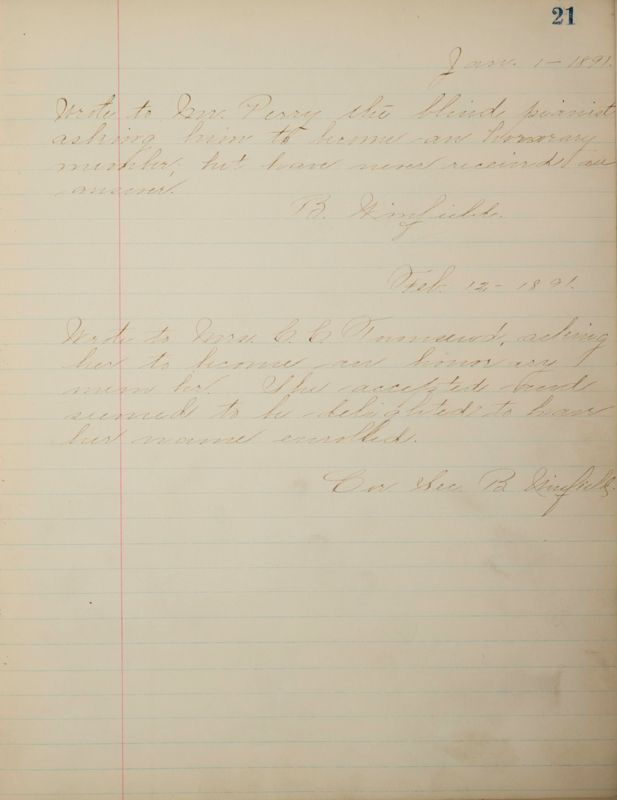 21
Jan. 1- 1891.
Wrote to Mr. Perry the blind pianist
asking him to become an honorary
member, but have never received an
answer.
B. Winfield.
Feb. 12- 1891.
Wrote to Mrs. C. C. Townsend, asking
her to become an honorary
member. She accepted and
seemed to be delighted to have
her name enrolled.
Cor Sec B. Winfield.